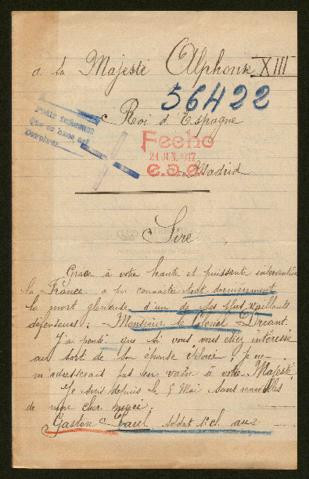 a Sa Majesté Alphonse XIII
56422
Roi d'Espagne
Fecho
21 JUN. 1917
Madrid
Sire
Grace à votre haute et puissante intervention
la France a pu connaitre tout dernièrement
la mort glorieuse d'un de ses plus vaillants
défenseurs : Monsieur le Colonel Driant.
J'ai pensé que si vous vous étiez intéressé
au sort de son épouse je ne
m'adresserais pas en vain à votre Majesté
Je suis depuis le 5 Mai sans nouvelles
de mon cher
Gaston soldat ans